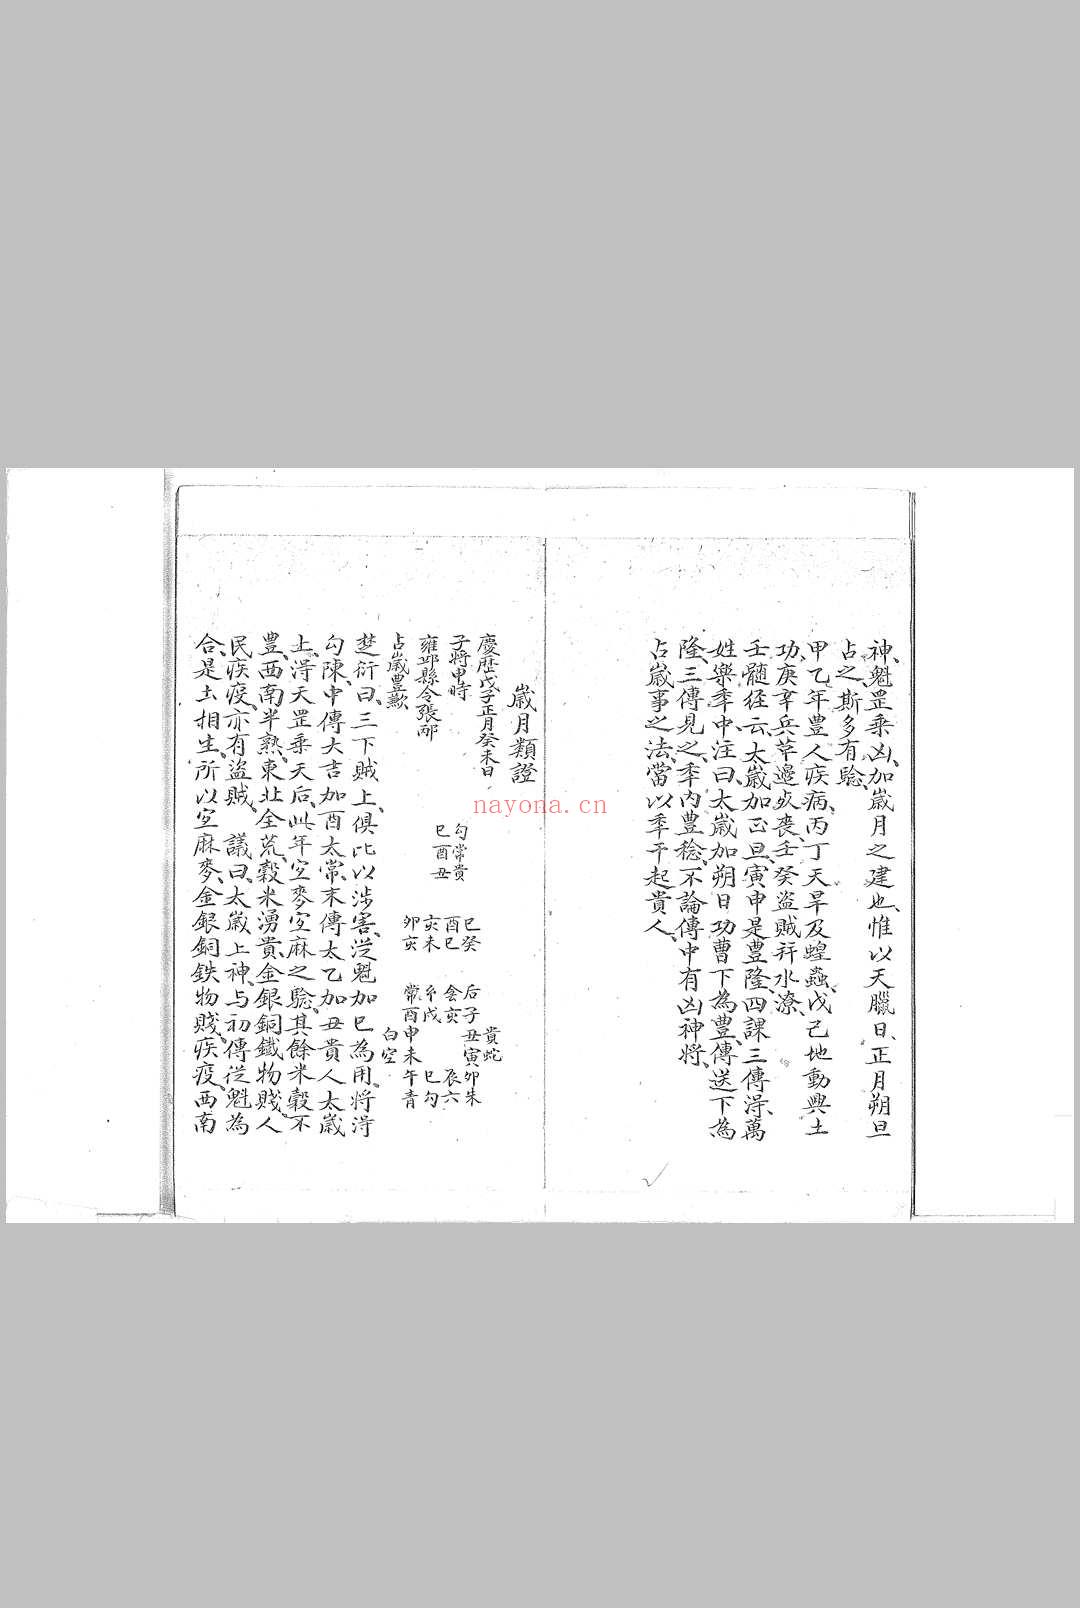 神魁罡乘凶、加歲月之建也、惟以天臘日、正月朔旦
占之、斯多有驗、
甲乙年豊人疾病、丙丁天旱及蝗蟲、戊己地動興土
功、庚辛兵草邊戎喪、壬癸盜賊并水潦、
壬髓径云、太歲加正旦、寅申是豊隆、四課三傳淂、萬
姓樂秊中、注曰、太歲加朔日功曹下為豊、傳送下為
隆、三傳見之、秊內豊稔、不論傳中有凶神將、
占歲事之法、當以秊干起貴人、
歲月類證
慶歷戊子正月癸未日
子將申時
雍邱縣令張邴
占歲豊歉
勾常貴
巳酉丑
巳癸
酉巳
亥未
卯亥
貴蛇
后子丑寅卯朱
侌亥 辰六
玄戌 巳勾
常酉申未午青
白空
楚衍曰、三下賊上、俱比以涉害、従魁加巳為用、將淂
勾陳、中傳大吉加酉太常、末傳太乙加丑貴人、太歲
上、淂天罡乘天后、此年宜麥宜麻之驗、其餘米穀不
豊、西南半熟、東北全荒、穀米湧貴、金銀銅鐵物賤、人
民疾疫、亦有盜賊、 議曰、太歲上神、与初傳従魁為
合、是土相生、所以宜麻麥、金銀銅鉄物賤、疾疫、西南
nayona.cn